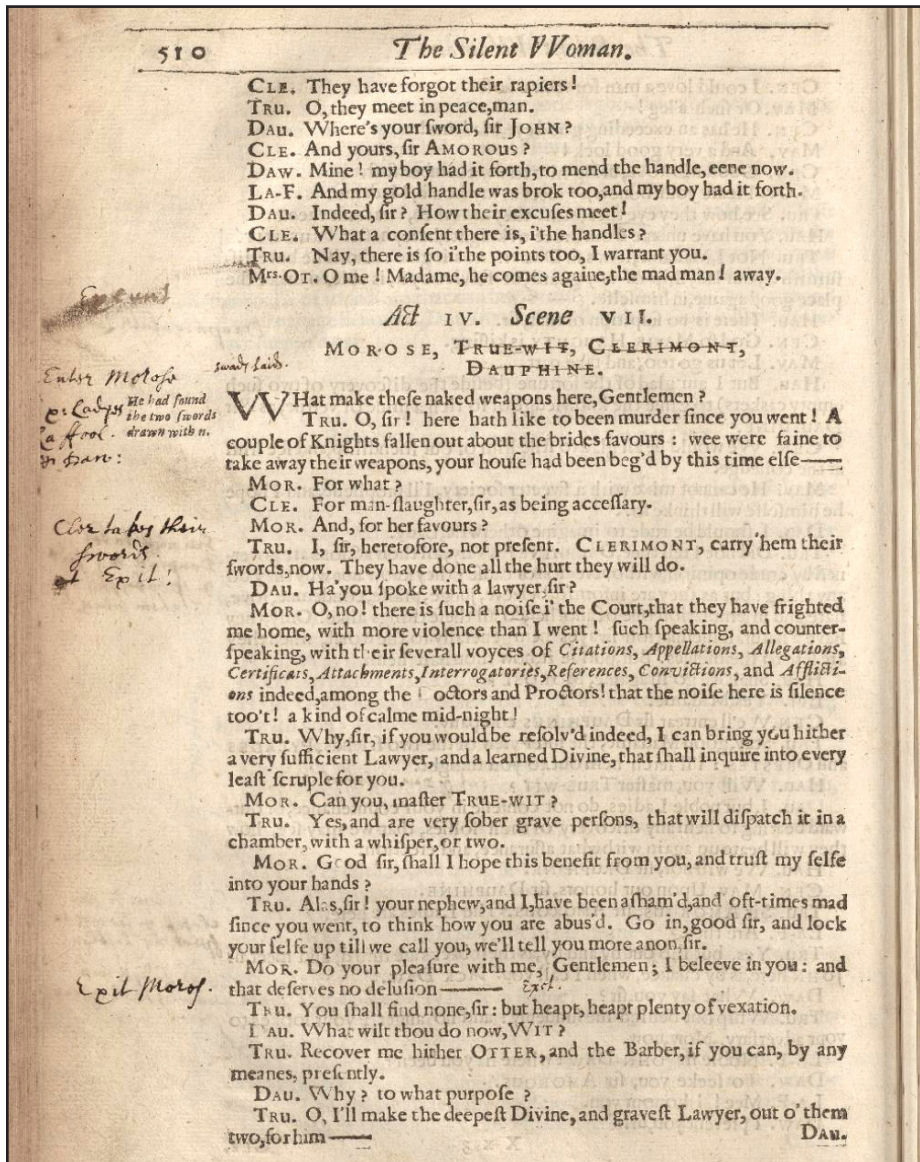 510 The Silent VVoman.
CLE. They have forgot their rapiers!
TRU. O, they meet in peace,man.
DAU. Where's your ſword, ſir JOHN?
CLE. And yours, ſir AMOROUS?
DAW. Mine! my boy had it forth, to mend the handle, eene now.
LA-F. And my gold handle was brok too,and my boy had it forth.
DAU. Indeed, ſir? How their excuſes meet!
CLE. What a conſent there is, i'the handles?
TRU. Nay, there is ſo i'the points too, I warrant you.
Mrs. OT. O me! Madame, he comes againe,the mad man! away.
Exeunt
Act IV. Scene VII.
MOROSE, TRUE-WIT, CLERIMONT,
DAUPHINE.
Enter Moroſe
La ffool.
Daw:
He had found
the two ſwords
drawn with n.
VVHat make theſe naked weapons here, Gentlemen?
TRU. O, ſir! here hath like to been murder ſince you went! A
couple of Knights fallen out about the brides favours: wee were faine to
take away their weapons, your houſe had been beg'd by this time elſe——
MOR. For what?
CLE. For man-ſlaughter,ſir, as being acceſſary.
MOR. And, for her favours?
Cler takes their
ſwords.
Exit!
TRU. I, ſir, heretofore, not preſent. CLERIMONT, carry 'hem their
ſwords,now. They have done all the hurt they will do.
DAU. Ha'you ſpoke with a lawyer,ſir?
MOR. O,no! there is ſuch a noiſe i' the Court,that they have frighted
me home, with more violence than I went! ſuch ſpeaking, and counter-
ſpeaking, with their ſeverall voyces of Citations, Appellations, Allegations,
Certificats, Attachments, Interrogatories, References, Convictions, and Afflicti-
ons indeed,among the octors and Proctors! that the noiſe here is ſilence
too't! a kind of calme mid-night!
TRU. Why,ſir, if you would be reſolv'd indeed, I can bring you hither
a very ſufficient Lawyer, and a learned Divine, that ſhall inquire into every
leaſt ſcruple for you.
MOR. Can you, maſter TRUE-WIT?
TRU. Yes,and are very ſober grave perſons, that will diſpatch it in a
chamber, with a whiſper,or two.
MOR. Good ſir, ſhall I hope this benefit from you, and truſt my ſelfe
into your hands?
TRU. Alas,ſir! your nephew,and I,have been aſham'd,and oft-times mad
ſince you went, to think how you are abus'd. Go in,good ſir, and lock
your ſelfe up till we call you, we'll tell you more anon,ſir.
MOR. Do your pleaſure with me, Gentlemen; I beleeve in you: and
Exit Moroſ. that deſerves no deluſion—— Exit.
TRU. You ſhall find none,ſir: but heapt, heapt plenty of vexation.
DAU. What wilt thou do now,WIT?
TRU. Recover me hither OTTER,and the Barber,if you can, by any
meanes, preſently.
DAU. Why? to what purpoſe?
TRU. O, I'll make the deepeſt Divine, and graveſt Lawyer, out o' them
two,for him—— DAU.